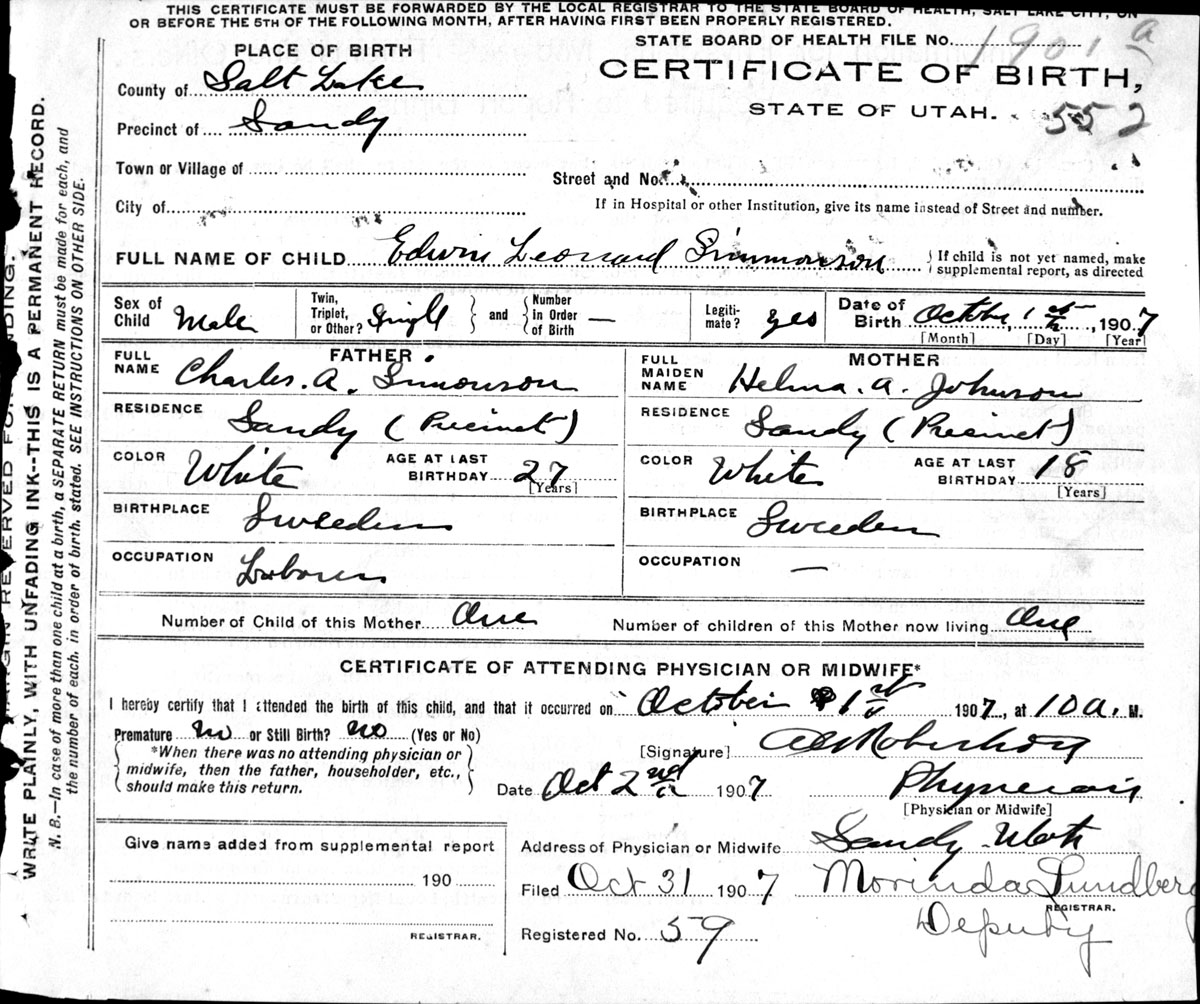 THIS CERTIFICATE MUST BE FORWARDED BY THE LOCAL REGISTRAR TO THE STATE BOARD OF HEALTH, SALT LAKE CITY, ON
OR BEFORE THE 5TH OF THE FOLLOWING MONTH, AFTER HAVING FIRST BEEN PROPERLY REGISTERED.
STATE BOARD OF HEALTH FILE NO. 1901 a
PLACE OF BIRTH
CERTIFICATE OF BIRTH,
STATE OF UTAH. 552
County of Salt Lake
Precinct of Sandy
Town or Village of
Street and No.
City of
If in Hospital or other Institution, give its name instead of Street and number.
FULL NAME OF CHILD Edwin Leonard Simmonson
If child is not yet named, make
supplemental report, as directed
Sex of Child Male
Twin, Triplet, or Other? Single and Number in Order of Birth —
Legitimate? yes
Date of Birth October, 1st, 1907
[Month] [Day] [Year]
FATHER
FULL NAME Charles. A. Simonson
RESIDENCE Sandy (Precinct)
COLOR White AGE AT LAST BIRTHDAY 27
[Years]
BIRTHPLACE Sweeden
OCCUPATION Laborer
MOTHER
FULL MAIDEN NAME Helma. A. Johnson
RESIDENCE Sandy (Precinct)
COLOR White AGE AT LAST BIRTHDAY 18
[Years]
BIRTHPLACE Sweeden
OCCUPATION —
Number of Child of this Mother One Number of children of this Mother now living One
CERTIFICATE OF ATTENDING PHYSICIAN OR MIDWIFE*
I hereby certify that I attended the birth of this child, and that it occurred on October 1st 1907, at 10 a. M.
Premature no or Still Birth? no (Yes or No)
*When there was no attending physician or
midwife, then the father, householder, etc.,
should make this return.
[Signature]
Date Oct 2nd 1907
Physician
[Physician or Midwife]
Address of Physician or Midwife Sandy Utah
Give name added from supplemental report
190
REGISTRAR.
Filed Oct 31 1907 Morinda Lundberg
REGISTRAR.
Deputy
Registered No. 59
MARGIN RESERVED FOR BINDING.
WRITE PLAINLY, WITH UNFADING INK--THIS IS A PERMANENT RECORD.
N. B.—In case of more than one child at a birth, a SEPARATE RETURN must be made for each, and
the number of each, in order of birth, stated. SEE INSTRUCTIONS ON OTHER SIDE.